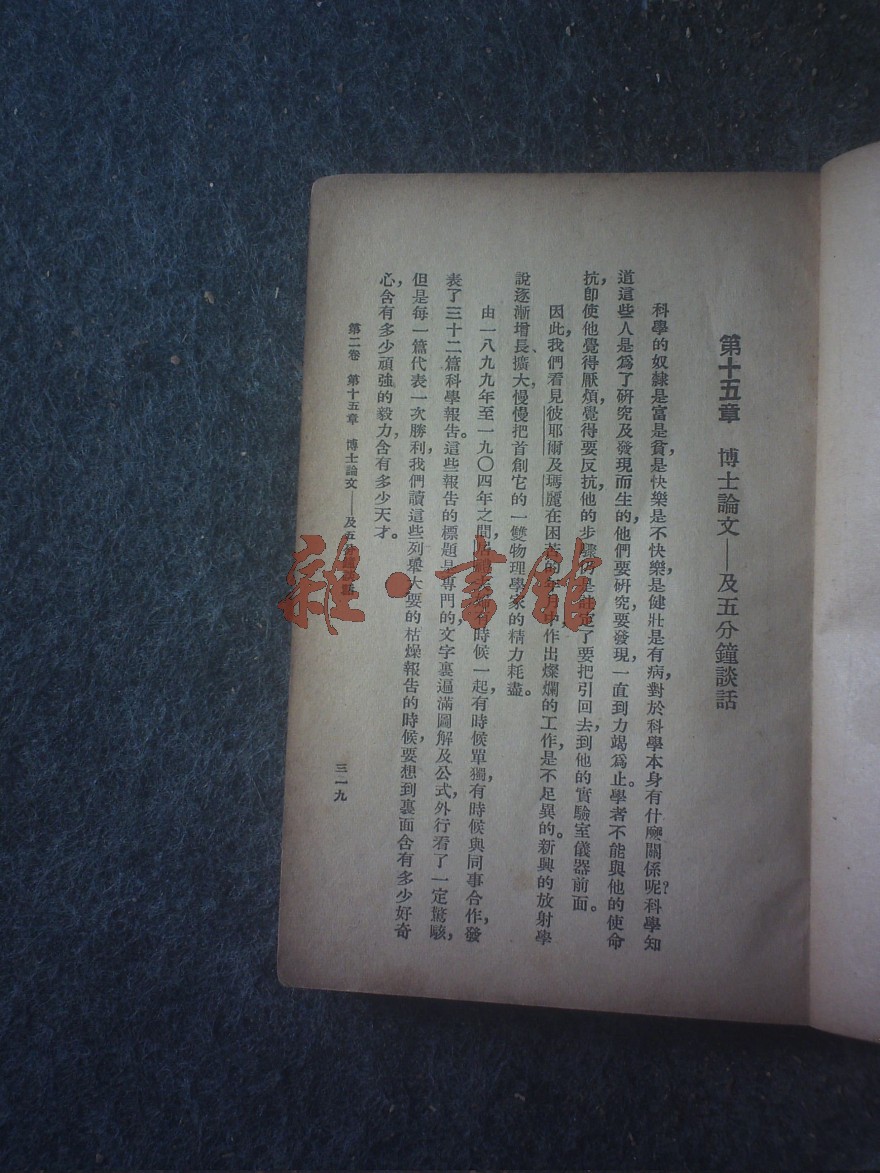 第十五章 博士論文——及五分鐘談話
科學的奴隸是富是貧,是快樂是不快樂,是健壯是有病,對於科學本身有什麼關係呢?科學知
道這些人是爲了研究及發現而生的,他們要研究,要發現,一直到力竭爲止。學者不能與他的使命
抗,即使他覺得厭煩,覺得要反抗,他的步驟仍是註定了要把引回去,到他的實驗室儀器前面。
因此,我們看見彼耶爾及瑪麗在困苦的年月中,作出燦爛的工作,是不足異的。新興的放射學
說逐漸增長、擴大,慢慢把首創它的一雙物理學家的精力耗盡。
由一八九九年至一九〇四年之間,有時候一起,有時候單獨,有時候與同事合作,發
表了三十二篇科學報告。這些報告的標題是專門的,文字裏遍滿圖解及公式,外行看了一定驚駭,
但是每一篇代表一次勝利,我們讀這些列舉大要的枯燥報告的時候,要想到裏面含有多少好奇
心,含有多少頑強的毅力,含有多少天才。
第二卷 第十五章 博士論文——及五分鐘談話
三一九
雜·書館